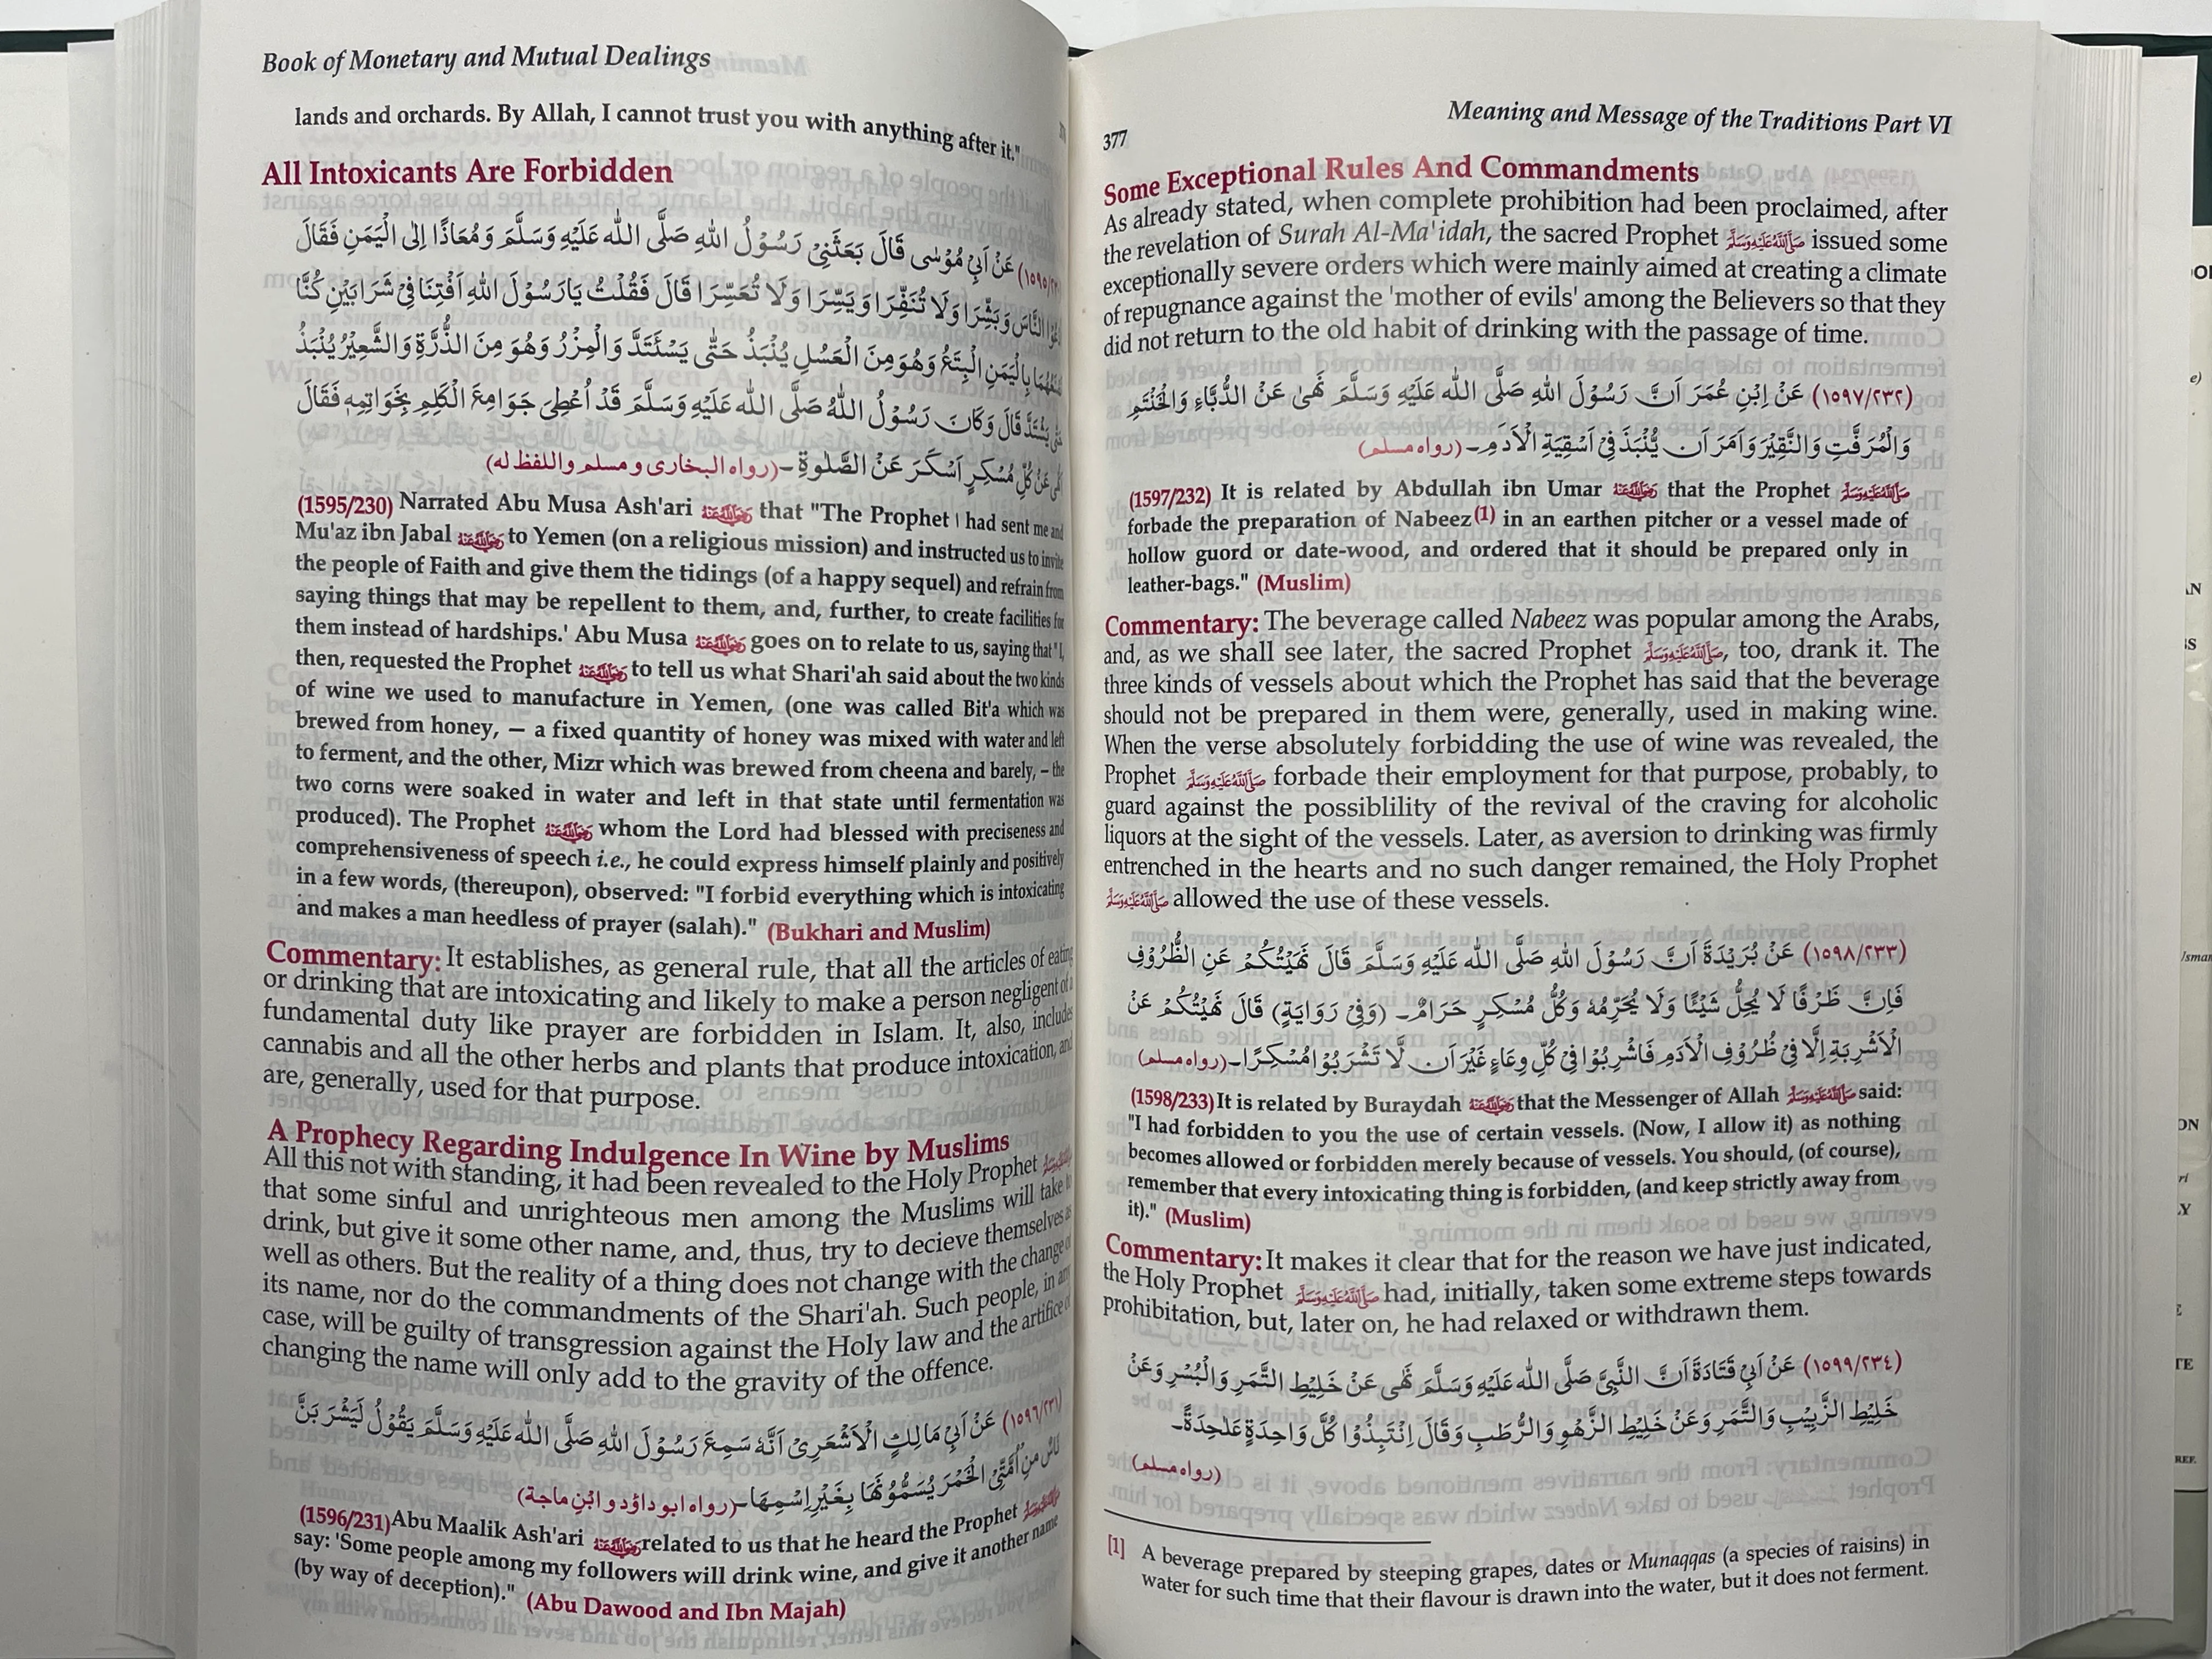 Book of Monetary and Mutual Dealings
lands and orchards. By Allah, I cannot trust you with anything after it."
All Intoxicants Are Forbidden
عَنْ اَبِيْ مُوْسٰى قَالَ بَعَثَنِيْ رَسُوْلُ اللهِ صَلَّى اللهُ عَلَيْهِ وَسَلَّمَ وَمُعَاذًا اِلَى الْيَمَنِ فَقَالَ
النَّاسَ وَبَشِّرَا وَلَا تُنَفِّرَا وَيَسِّرَا وَلَا تُعَسِّرَا قَالَ فَقُلْتُ يَارَسُوْلَ اللهِ اَفْتِنَا فِيْ شَرَابَيْنِ كُنَّا
بِالْيَمَنِ الْبِتَعُ وَهُوَ مِنَ الْعَسَلِ يُنْبَذُ حَتّٰى يَسْتَدَّ وَالْمِزْرُ وَهُوَ مِنَ الذُّرَةِ وَالشَّعِيْرُ يُنْبَذُ
يَشْتَدَّ قَالَ وَكَانَ رَسُوْلُ اللهُ صَلَّى اللهُ عَلَيْهِ وَسَلَّمَ قَدْ اُعْطِيَ جَوَامِعَ الْكَلِمِ بِخَوَاتِمِهٖ فَقَالَ
عَنْ كُلِّ مُسْكِرٍ اَسْكَرَ عَنْ الصَّلٰوةِ۔ (رواه البخارى و مسلم واللفظ له)
(1595/230) Narrated Abu Musa Ash'ari رضي الله عنه that "The Prophet | had sent me and
Mu'az ibn Jabal رضي الله عنه to Yemen (on a religious mission) and instructed us to invite
the people of Faith and give them the tidings (of a happy sequel) and refrain from
saying things that may be repellent to them, and, further, to create facilities for
them instead of hardships.' Abu Musa رضي الله عنه goes on to relate to us, saying that "I,
then, requested the Prophet رضي الله عنه to tell us what Shari'ah said about the two kinds
of wine we used to manufacture in Yemen, (one was called Bit'a which was
brewed from honey, — a fixed quantity of honey was mixed with water and left
to ferment, and the other, Mizr which was brewed from cheena and barely, – the
two corns were soaked in water and left in that state until fermentation was
produced). The Prophet رضي الله عنه whom the Lord had blessed with preciseness and
comprehensiveness of speech i.e., he could express himself plainly and positively
in a few words, (thereupon), observed: "I forbid everything which is intoxicating
and makes a man heedless of prayer (salah)." (Bukhari and Muslim)
Commentary: It establishes, as general rule, that all the articles of eating
or drinking that are intoxicating and likely to make a person negligent of a
fundamental duty like prayer are forbidden in Islam. It, also, includes
cannabis and all the other herbs and plants that produce intoxication, and
are, generally, used for that purpose.
A Prophecy Regarding Indulgence In Wine by Muslims
All this not with standing, it had been revealed to the Holy Prophet صلى الله عليه وسلم
that some sinful and unrighteous men among the Muslims will take to
drink, but give it some other name, and, thus, try to decieve themselves as
well as others. But the reality of a thing does not change with the change of
its name, nor do the commandments of the Shari'ah. Such people, in any
case, will be guilty of transgression against the Holy law and the artifice of
changing the name will only add to the gravity of the offence.
(١٥٩٦/٢٣١) عَنْ اَبِيْ مَالِكٍ الْاَشْعَرِىْ اَنَّهٗ سَمِعَ رَسُوْلَ اللهِ صَلَّى اللهُ عَلَيْهِ وَسَلَّمَ يَقُوْلُ لَيَشْرَبَنَّ
نَاسٌ مِنْ اُمَّتِيْ الْخَمْرَ يُسَمُّوْنَهَا بِغَيْرِ اِسْمِهَا۔ (رواه ابو داؤد و ابْنِ ماجة)
(1596/231)Abu Maalik Ash'ari رضي الله عنه related to us that he heard the Prophet صلى الله عليه وسلم
say: 'Some people among my followers will drink wine, and give it another name
(by way of deception)." (Abu Dawood and Ibn Majah)
377
Meaning and Message of the Traditions Part VI
Some Exceptional Rules And Commandments
As already stated, when complete prohibition had been proclaimed, after
the revelation of Surah Al-Ma'idah, the sacred Prophet صلى الله عليه وسلم issued some
exceptionally severe orders which were mainly aimed at creating a climate
of repugnance against the 'mother of evils' among the Believers so that they
did not return to the old habit of drinking with the passage of time.
(١٥٩٧/٢٣٢) عَنْ اِبْنِ عُمَرَ اَنَّ رَسُوْلَ اللهِ صَلَّى اللهُ عَلَيْهِ وَسَلَّمَ نَهٰى عَنْ الدُّبَّاءِ وَالْحَنْتَمِ
وَالْمُزَفَّتِ وَالنَّقِيْرَ وَاَمَرَ اَن يُّنْبَذَ فِيْ اَسْقِيَةِ الْاَدَمِ۔ (رواه مسلم)
(1597/232) It is related by Abdullah ibn Umar رضي الله عنه that the Prophet صلى الله عليه وسلم
forbade the preparation of Nabeez(1) in an earthen pitcher or a vessel made of
hollow guord or date-wood, and ordered that it should be prepared only in
leather-bags." (Muslim)
Commentary: The beverage called Nabeez was popular among the Arabs,
and, as we shall see later, the sacred Prophet صلى الله عليه وسلم, too, drank it. The
three kinds of vessels about which the Prophet has said that the beverage
should not be prepared in them were, generally, used in making wine.
When the verse absolutely forbidding the use of wine was revealed, the
Prophet صلى الله عليه وسلم forbade their employment for that purpose, probably, to
guard against the possiblility of the revival of the craving for alcoholic
liquors at the sight of the vessels. Later, as aversion to drinking was firmly
entrenched in the hearts and no such danger remained, the Holy Prophet
صلى الله عليه وسلم allowed the use of these vessels.
(١٥٩٨/٢٣٣) عَنْ بُرَيْدَةَ اَنَّ رَسُوْلَ اللهِ صَلَّى اللهُ عَلَيْهِ وَسَلَّمَ قَالَ نَهَيْتُكُمْ عَنِ الظُّرُوْفِ
فَاِنَّ ظَرْفًا لَا يُحِلُّ شَيْئًا وَلَا يُحَرِّمُهٗ وَكُلُّ مُسْكِرٍ حَرَامٌ۔ (وَفِيْ رَوَايَةٍ) قَالَ نَهَيْتُكُمْ عَنْ
الْاَشْرِبَةِ اِلَّا فِيْ ظُرُوْفِ الْاَدَمِ فَاشْرِبُوْا فِيْ كُلِّ وِعَاءٍ غَيْرَ اَن لَّا تَشْرَبُوْا مُسْكِرًا۔ (رواه مسلم)
(1598/233)It is related by Buraydah رضي الله عنه that the Messenger of Allah صلى الله عليه وسلم said:
"I had forbidden to you the use of certain vessels. (Now, I allow it) as nothing
becomes allowed or forbidden merely because of vessels. You should, (of course),
remember that every intoxicating thing is forbidden, (and keep strictly away from
it)." (Muslim)
Commentary: It makes it clear that for the reason we have just indicated,
the Holy Prophet صلى الله عليه وسلم had, initially, taken some extreme steps towards
prohibitation, but, later on, he had relaxed or withdrawn them.
(١٥٩٩/٢٣٤) عَنْ اَبِيْ قَتَادَةَ اَنَّ النَّبِيَّ صَلَّى اللهُ عَلَيْهِ وَسَلَّمَ نَهٰى عَنْ خَلِيْطِ التَّمَرِ وَالْبُسْرِ وَعَنْ
خَلِيْطِ الزَّبِيْبِ وَالتَّمَرِ وَعَنْ خَلِيْطِ الزَّهْوِ وَالرُّطَبِ وَقَالَ اِنْتَبِذُوْا كُلَّ وَاحِدَةٍ عَلٰحِدَةً۔
(رواه مسلم)
[1] A beverage prepared by steeping grapes, dates or Munaqqas (a species of raisins) in
water for such time that their flavour is drawn into the water, but it does not ferment.